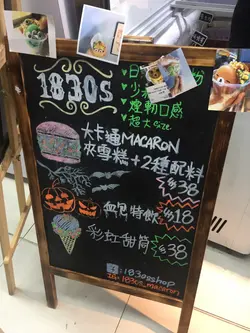 1830s
日
粉
少
煙韌口感
超大size
大卡通MACARON
夾雪糕+2種配料
$38
血包特飲 $18
彩虹甜筒 $38
:1830sshop
:1830s_macaron